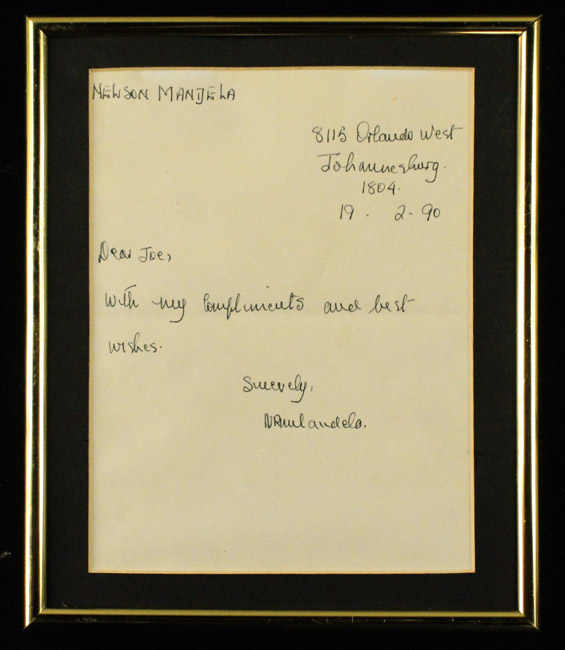 NELSON MANDELA
8115 Orlando West
Johannesburg.
1804.
19 - 2-90
Dear Joe,
With my compliments and best
wishes.
Sincerely,
NRMandela.